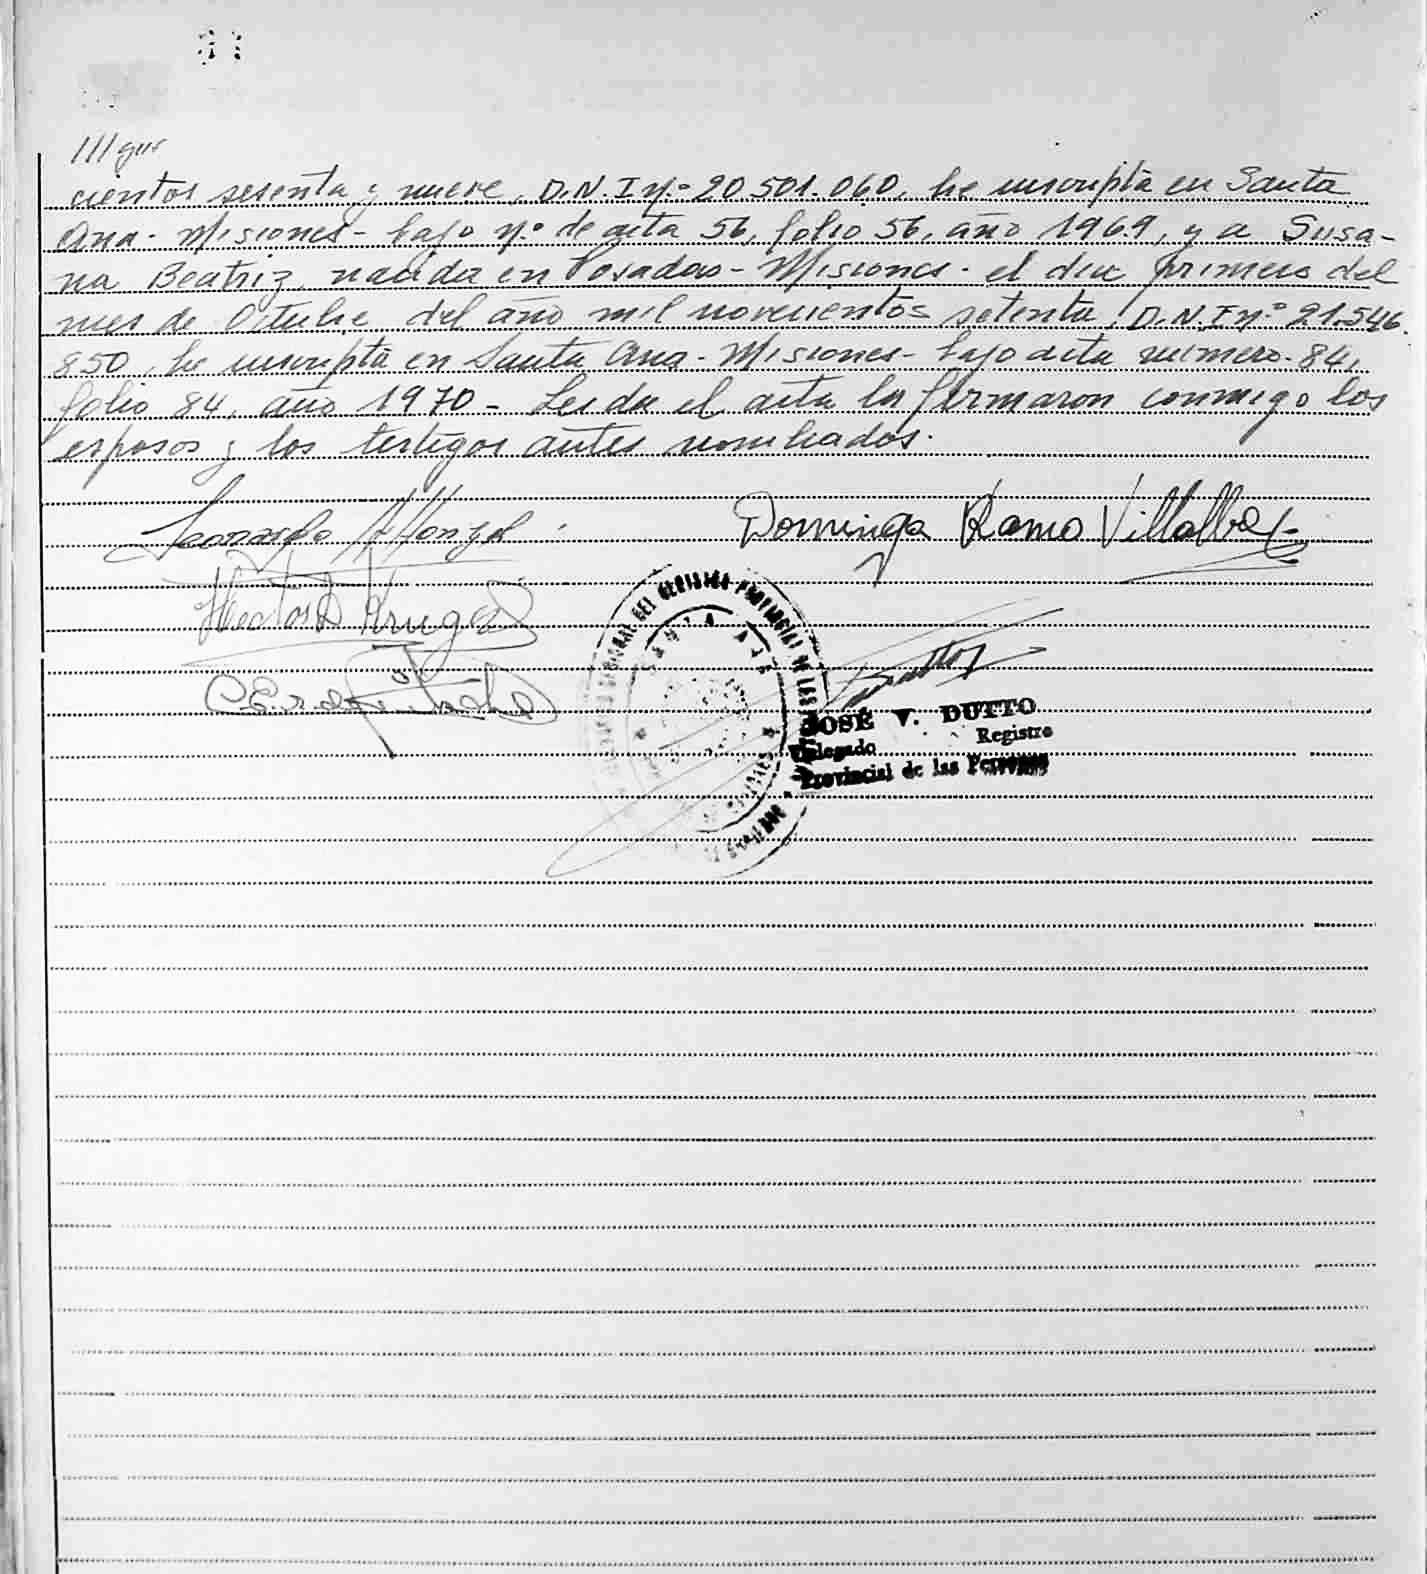 ///que
cientos sesenta y nueve, D.N.I nº 20.501.060, he inscripta en Santa
Ana - Misiones - bajo nº de acta 56, folio 56, año 1969, y a Susa-
na Beatriz, nacida en Posadas - Misiones - el dia primero del
mes de Octubre del año mil novecientos setenta, D.N.I nº 21.546.
850, he inscripta en Santa Ana - Misiones - bajo acta número 84,
folio 84, año 1970 - Leida el acta la firmaron conmigo los
esposos y los testigos antes nombrados.
Leonardo Dominga Ramo Villalba
SANTA ANA
JOSÉ V. DUTTO
Delegado Registro
Provincial de las Personas